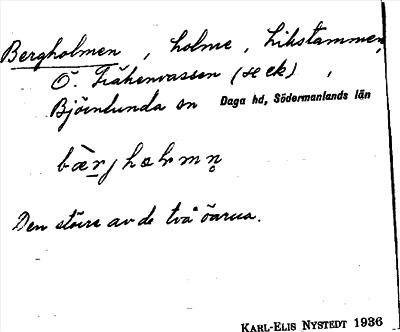 Bergholmen, holme, Likstammen,
Ö. Fräkenvassen (se ek),
Björnlunda sn Daga hd, Södermanlands län
bær̀j hɷlmn̥
Den större av de två öarna.
KARL-ELIS NYSTEDT 1936